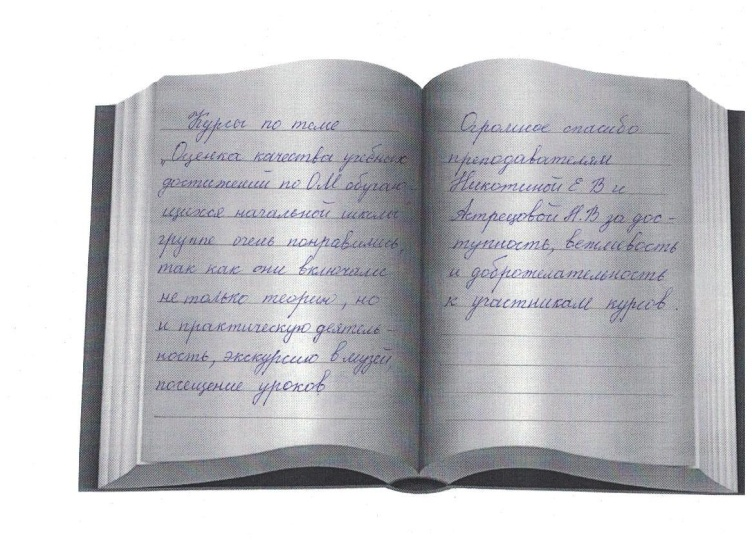 Курсы по теме
„Оценка качества учебных
достижений по ОМ обучаю-
щихся начальной школы"
группе очень понравились,
так как они включали
не только теорию, но
и практическую деятель-
ность, экскурсию в музей,
посещение уроков
Огромное спасибо
преподавателям
Никотиной Е В и
Астрецовой А.В за дос-
тупность, вежливость
и доброжелательность
к участникам курсов.